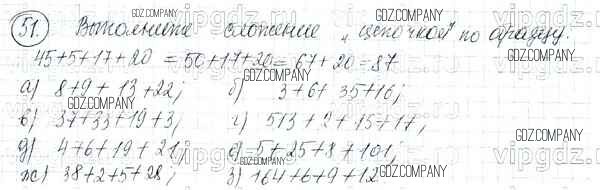 51. Выполните сложение "цепочкой" по образцу.
45+5+17+20 = 50+17+20 = 67+20 = 87
а) 8+9+13+22; б) 3+6+35+16;
в) 37+33+19+3; г) 513+2+15+17;
д) 4+6+19+21; е) 5+25+8+101;
ж) 38+2+5+28; з) 164+6+9+12
GDZ.COMPANY
vipgdz.ru